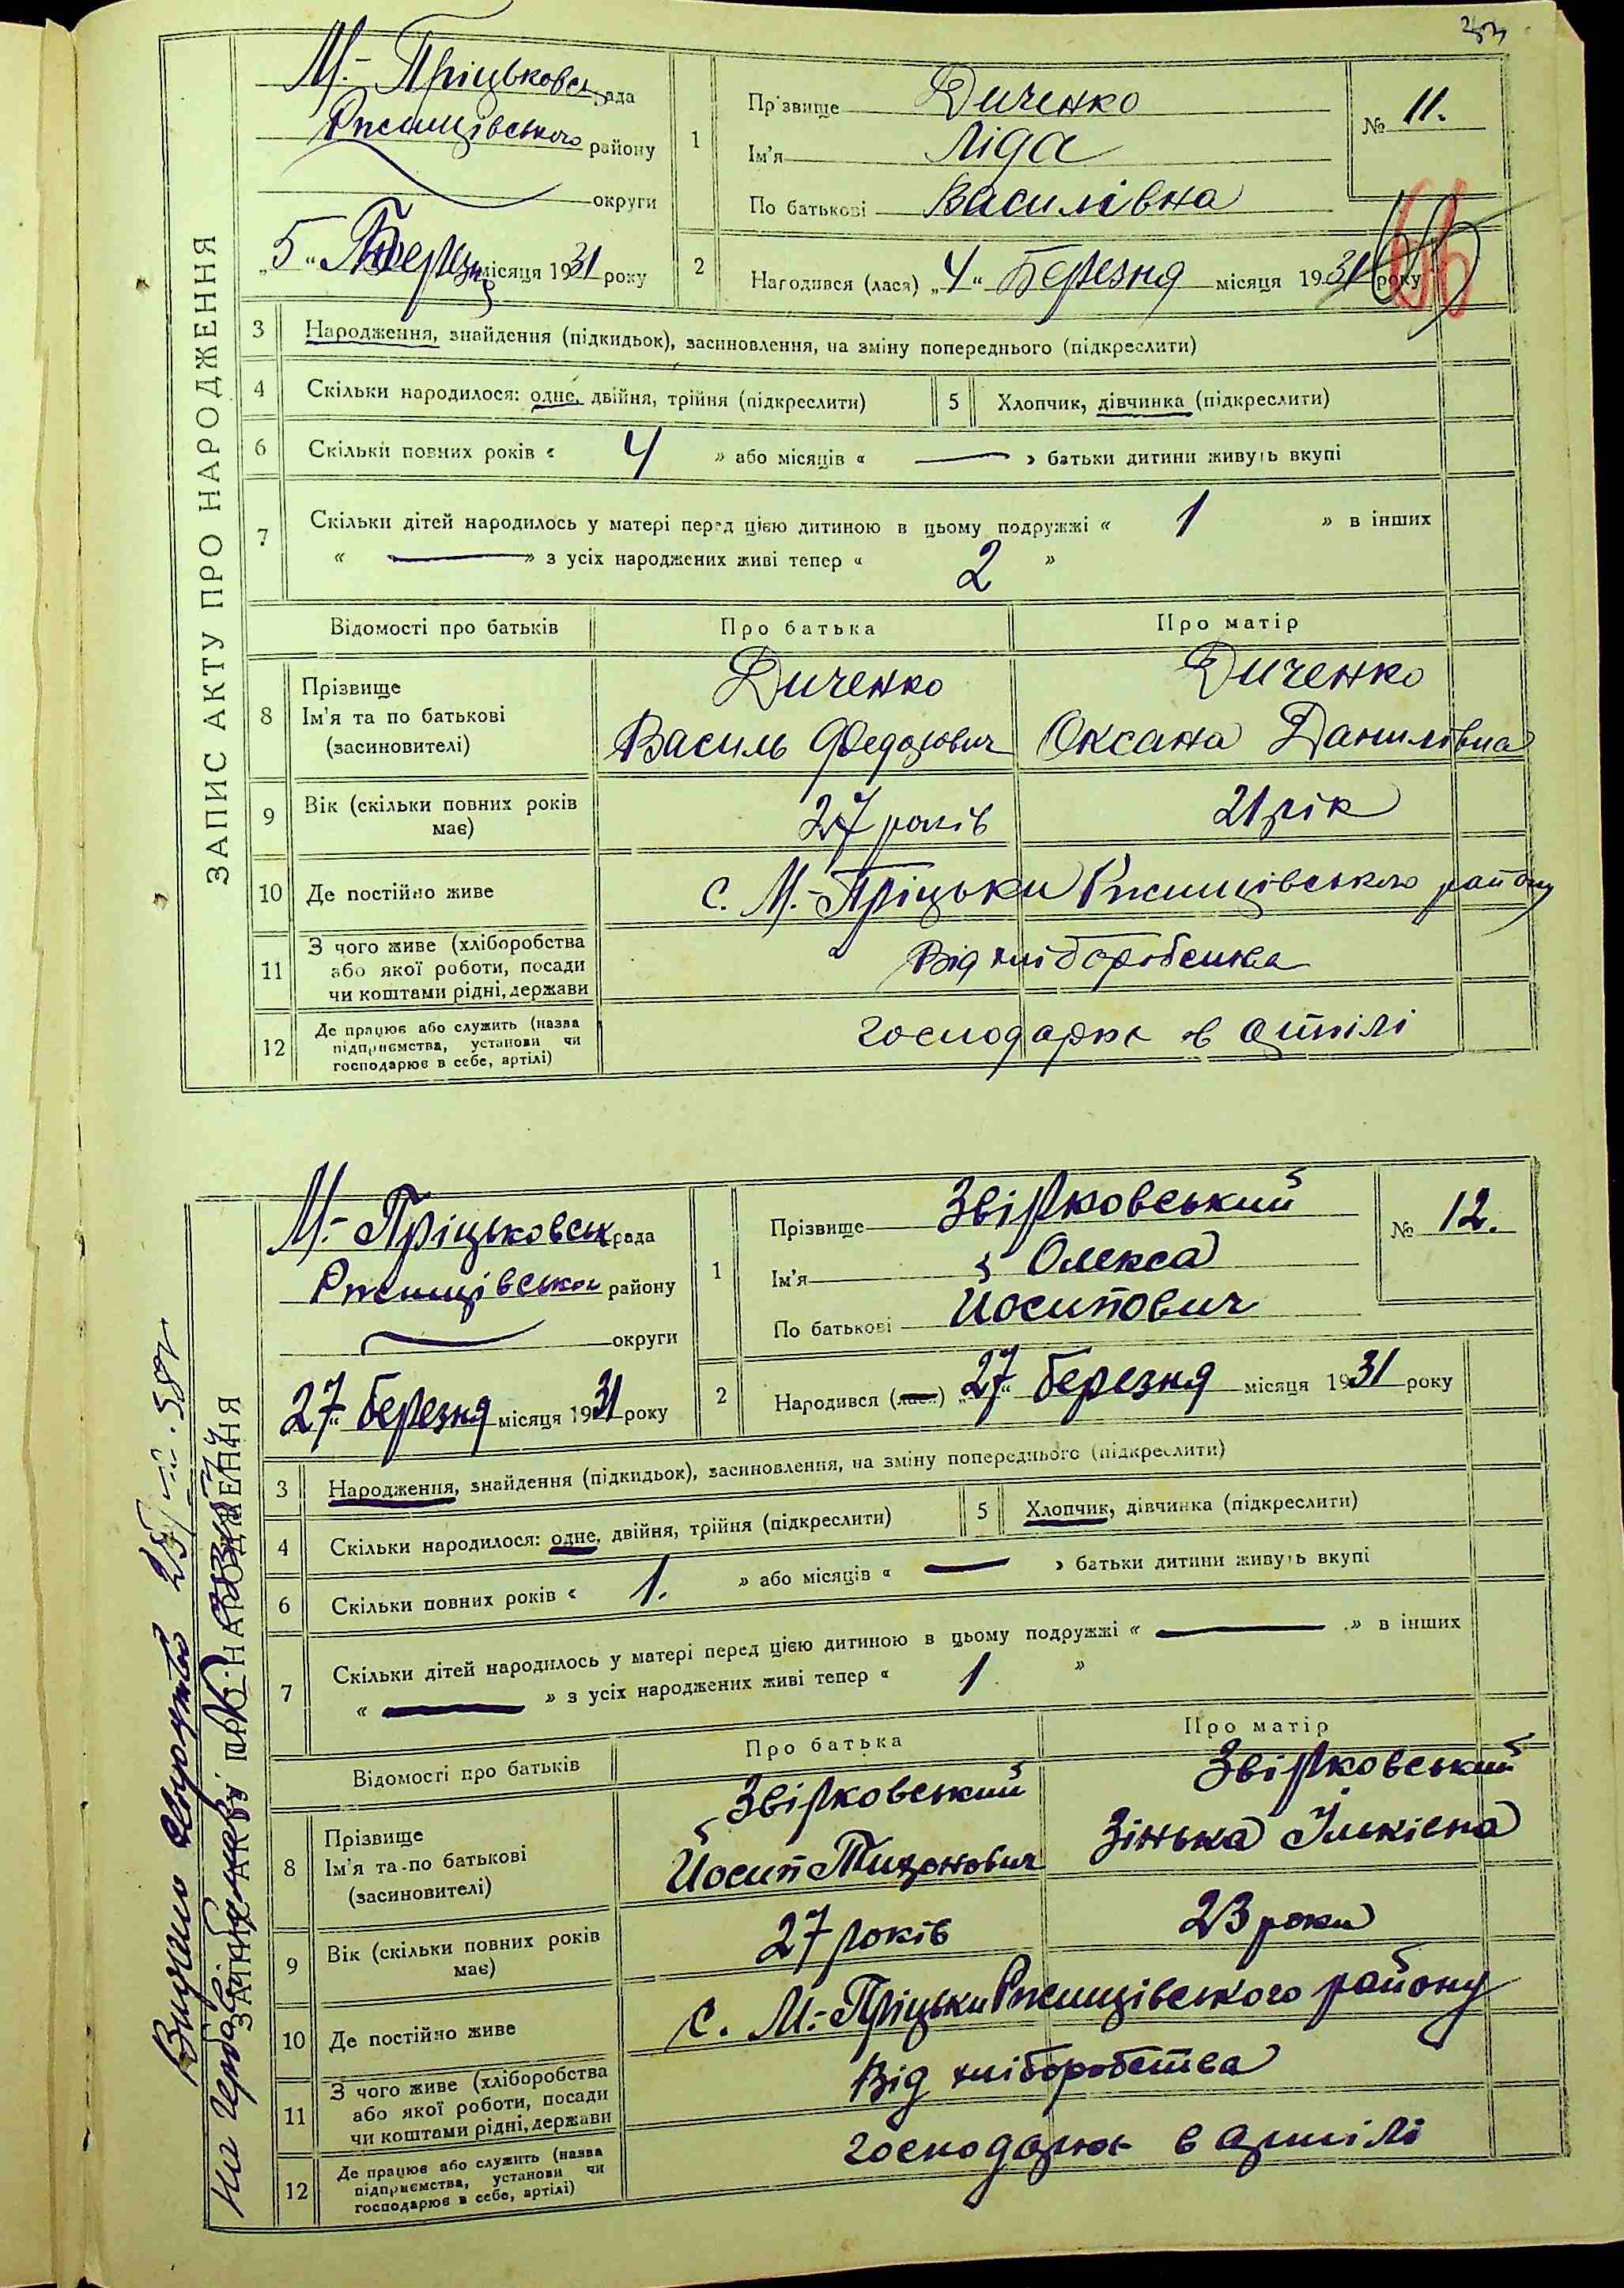 ЗАПИС АКТУ ПРО НАРОДЖЕННЯ
М.-Пріцьковськ рада
Ржищівського району
округи
„5“ Березня місяця 1931 року
1 Прізвище Диченко
Ім'я Ліда
По батькові Василівна
№ 11.
2 Народився (лася) „4“ Березня місяця 1931 року
3 Народження, знайдення (підкидьок), засиновлення, на зміну попереднього (підкреслити)
4 Скільки народилося: одне, двійня, трійня (підкреслити) 5 Хлопчик, дівчинка (підкреслити)
6 Скільки повних років « 4 » або місяців « — » батьки дитини живуть вкупі
7 Скільки дітей народилось у матері перед цією дитиною в цьому подружжі « 1 » в інших
« — » з усіх народжених живі тепер « 2 »
Відомості про батьків Про батька Про матір
8 Прізвище Диченко Диченко
Ім'я та по батькові Василь Федорович Оксана Данилівна
(засиновителі)
9 Вік (скільки повних років має) 27 років 21 рік
10 Де постійно живе с. М.-Пріцьки Ржищівського району
11 З чого живе (хліборобства або якої роботи, посади чи коштами рідні, держави Від хліборобства
12 Де працює або служить (назва підприємства, установи чи господарює в себе, артілі) господарює в артілі
ЗАПИС АКТУ ПРО НАРОДЖЕННЯ
Видано
М.-Пріцьковськ рада
Ржищівськог району
округи
27 березня місяця 1931 року
1 Прізвище Звірковський
Ім'я Олекса
По батькові Йосипович
№ 12.
2 Народився (лася) „27“ березня місяця 1931 року
3 Народження, знайдення (підкидьок), засиновлення, на зміну попереднього (підкреслити)
4 Скільки народилося: одне, двійня, трійня (підкреслити) 5 Хлопчик, дівчинка (підкреслити)
6 Скільки повних років « 1. » або місяців « — » батьки дитини живуть вкупі
7 Скільки дітей народилось у матері перед цією дитиною в цьому подружжі « — » в інших
« — » з усіх народжених живі тепер « 1 »
Відомості про батьків Про батька Про матір
8 Прізвище Звірковський Звірковський
Ім'я та по батькові Йосип Тихонович Зінька Ільківна
(засиновителі)
9 Вік (скільки повних років має) 27 років 23 роки
10 Де постійно живе с. М.-Пріцьки Ржищівського району
11 З чого живе (хліборобства або якої роботи, посади чи коштами рідні, держави Від хліборобства
12 Де працює або служить (назва підприємства, установи чи господарює в себе, артілі) господарює в артілі